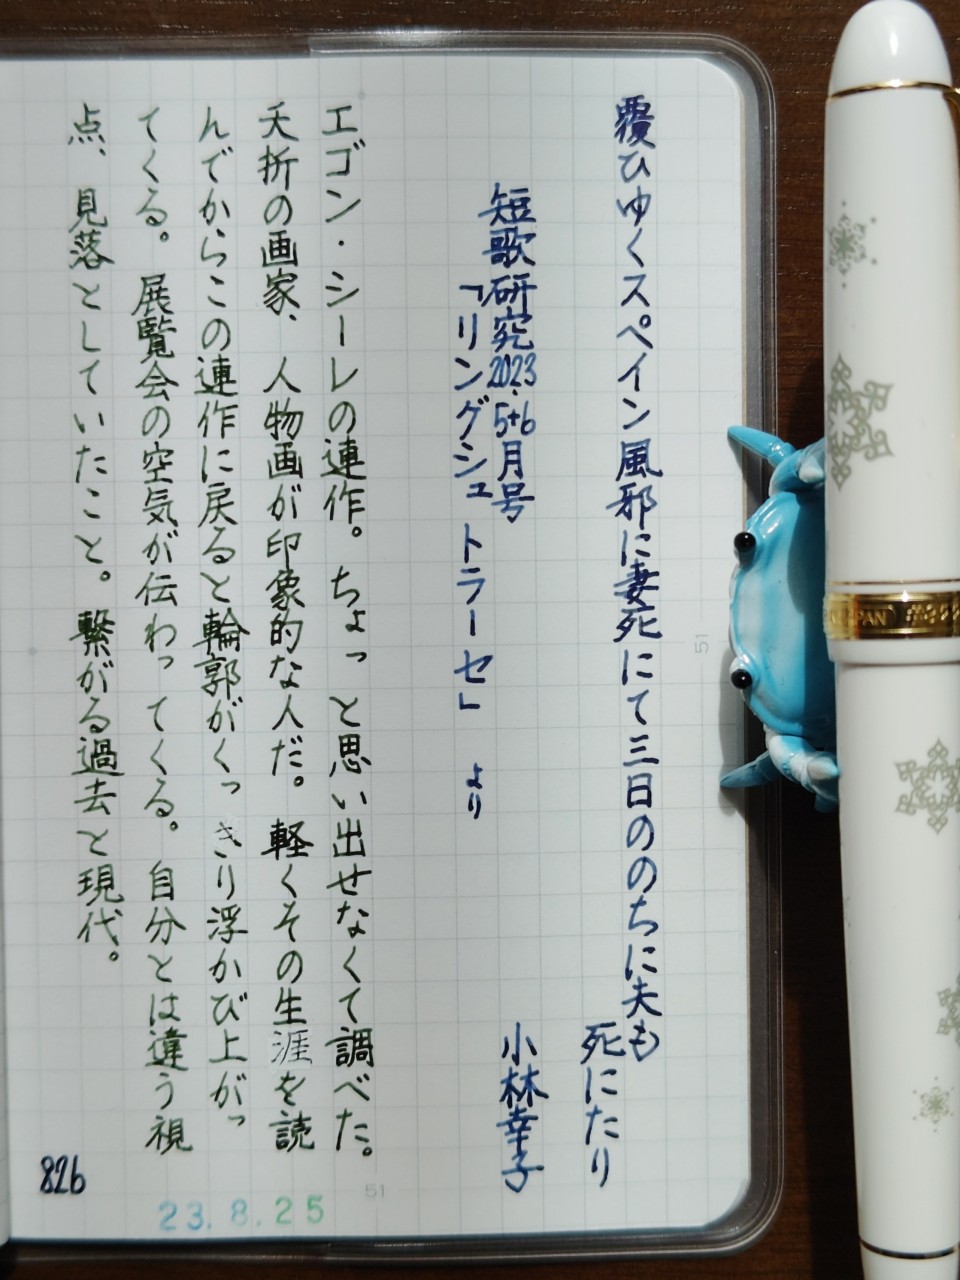 覆ひゆくスペイン風邪に妻死にて三日ののちに夫も
死にたり
短歌研究2023.5+6月号
「リングシュトラーセ」より
小林幸子
エゴン・シーレの連作。ちょっと思い出せなくて調べた。
夭折の画家、人物画が印象的な人だ。軽くその生涯を読
んでからこの連作に戻ると輪郭がくっきり浮かび上がっ
てくる。展覧会の空気が伝わってくる。自分とは違う視
点、見落としていたこと。繋がる過去と現代。
826
23.8.25
51
51
PAN